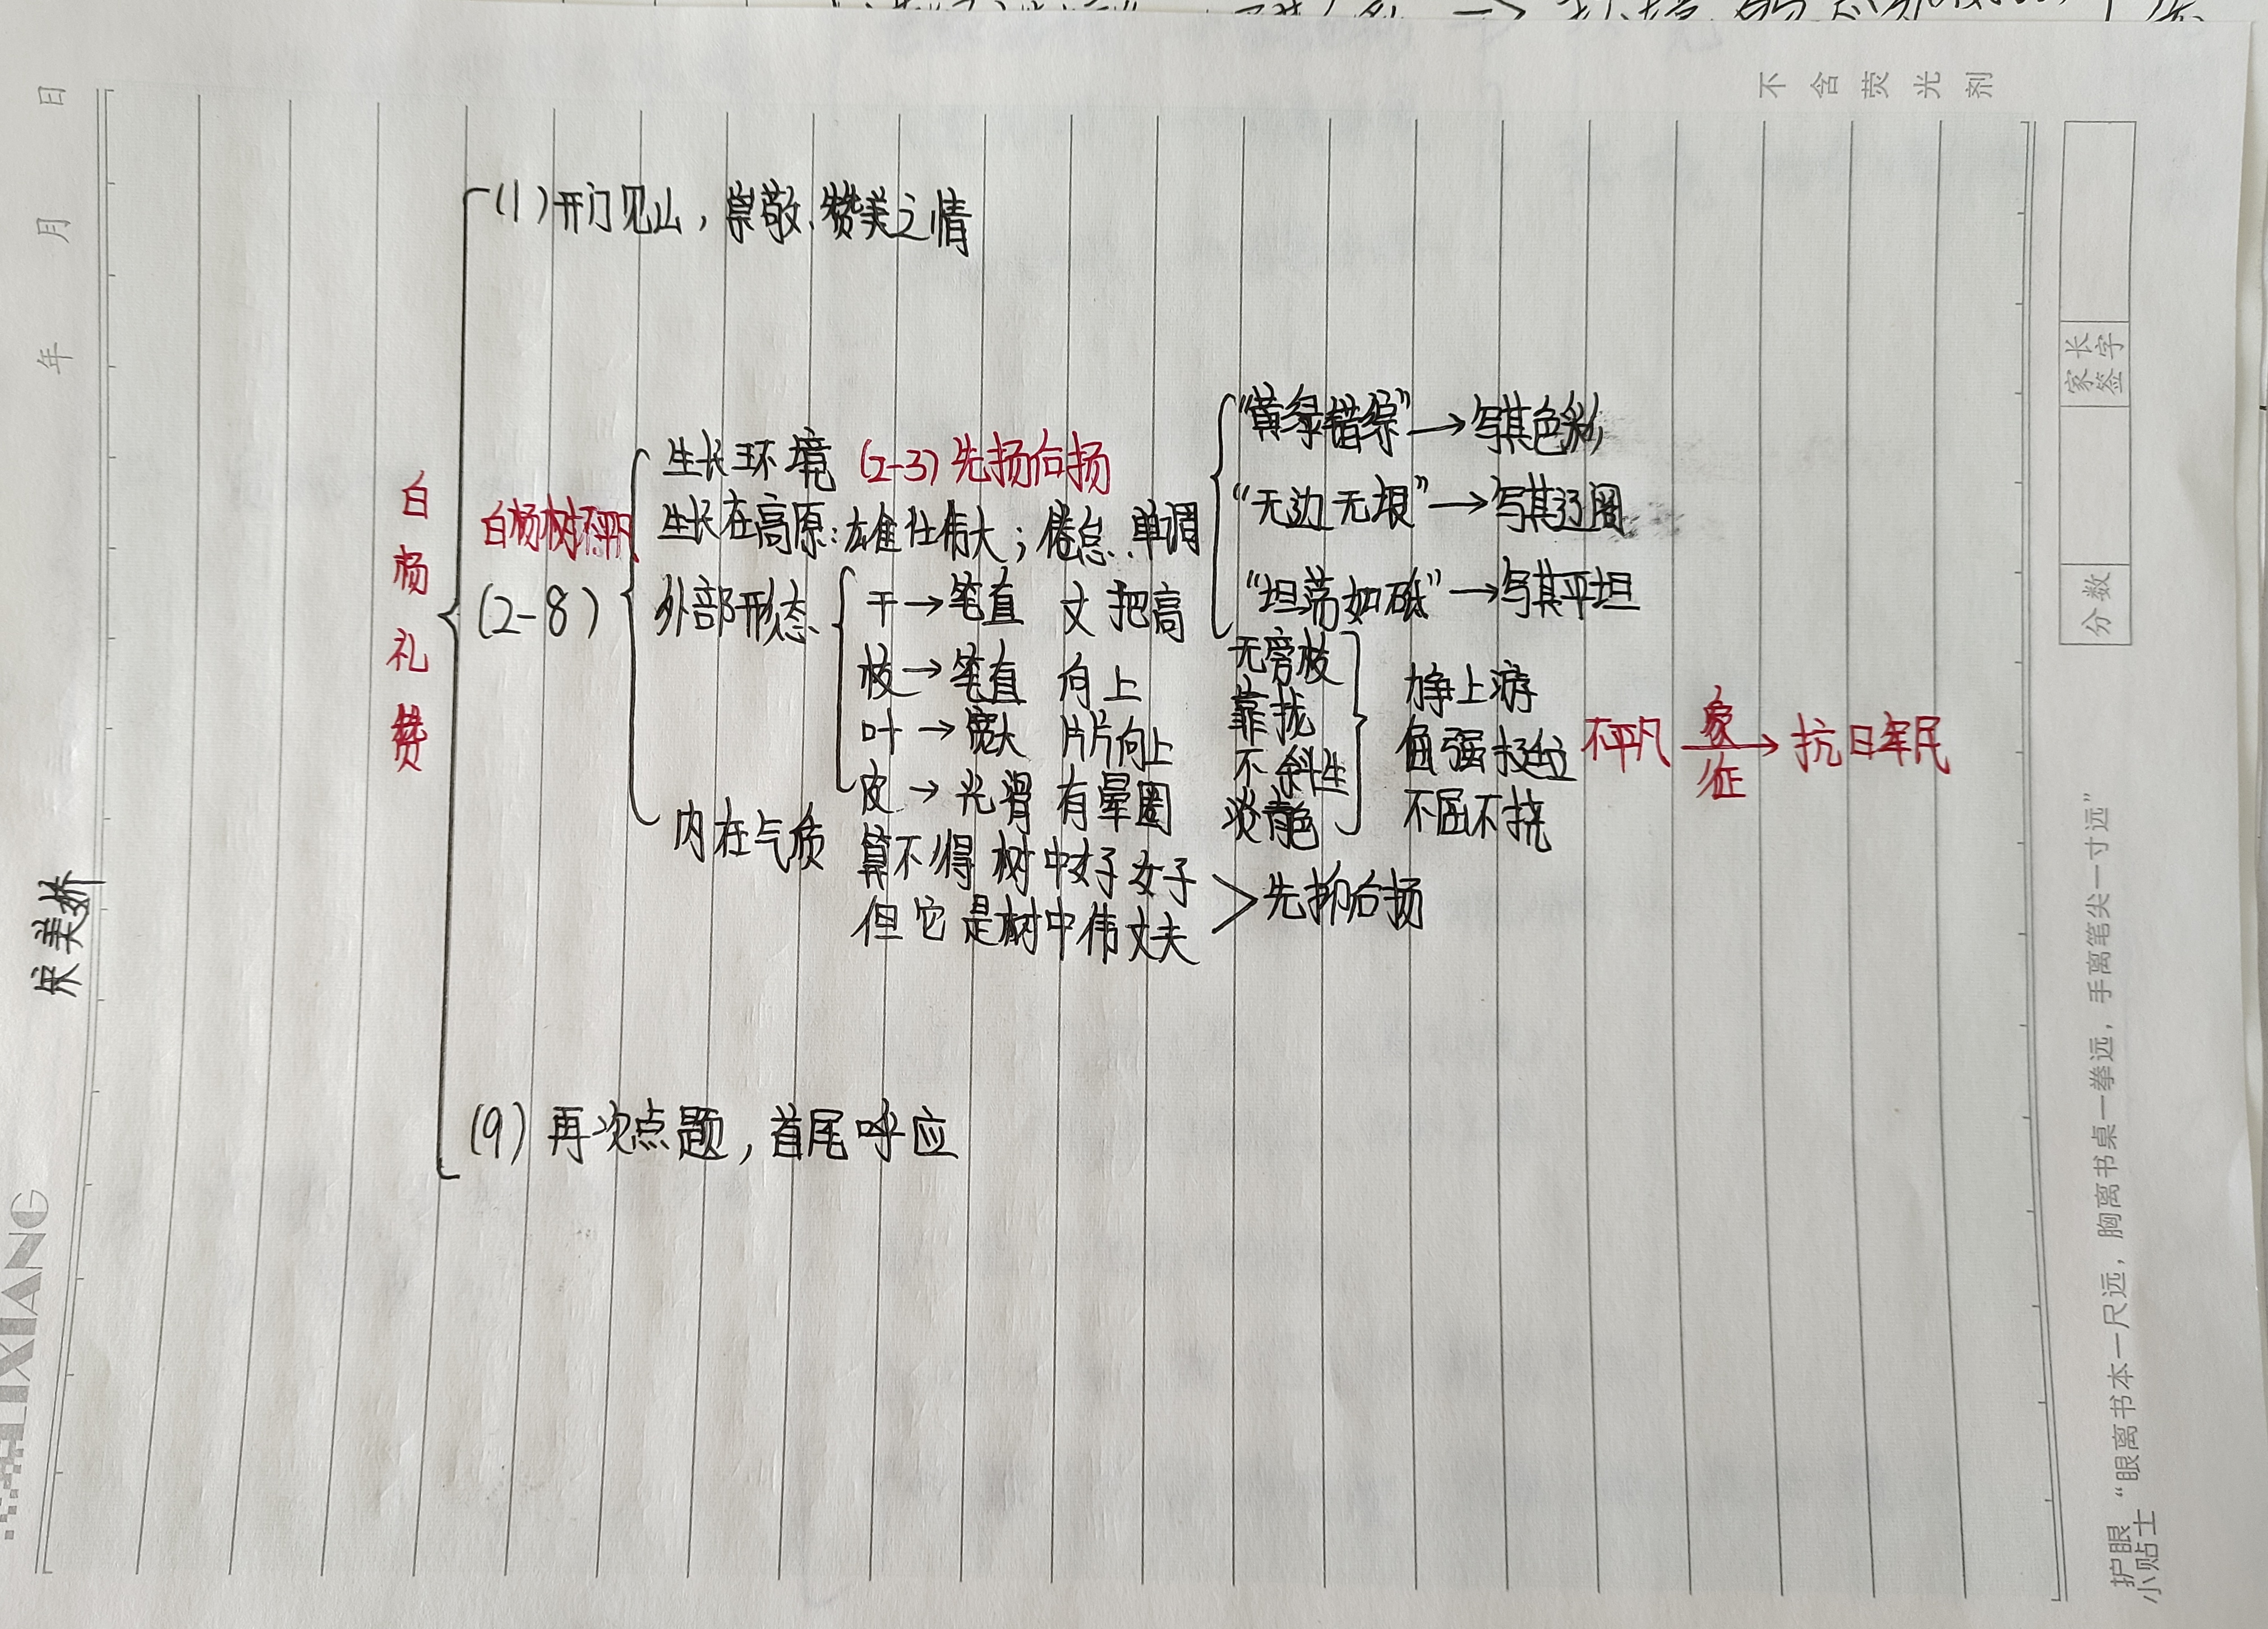 不含荧光剂
年 月 日
宋美娇
LIXIANG
白杨礼赞
(1)开门见山，崇敬、赞美之情
白杨树不平凡
(2-8)
生长环境 (2-3) 先扬后扬
生长在高原：雄壮伟大；倦怠、单调
“黄绿错综”→写其色彩
“无边无垠”→写其辽阔
“坦荡如砥”→写其平坦
外部形态
干→笔直 丈把高 无旁枝
枝→笔直 向上 靠拢
叶→宽大 片片向上 不斜生
皮→光滑 有晕圈 淡青色
力争上游
倔强挺立
不屈不挠
不平凡 象征→ 抗日军民
内在气质
算不得树中好女子
但它是树中伟丈夫
>先抑后扬
(9) 再次点题，首尾呼应
家长签字
分数
护眼小贴士 “眼离书本一尺远，胸离书桌一拳远，手离笔尖一寸远”